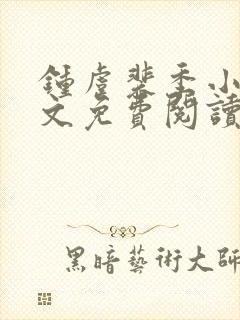 鍾虐裴季小
文免費閱讀
黑暗藝術大師